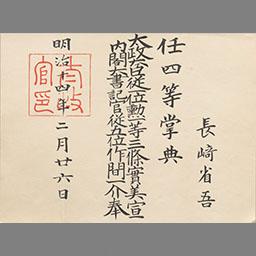 長﨑省吾
任四等掌典
太政大臣從一位勲一等三條實美宣
内閣大書記官從五位作間一介奉
明治十四年二月廿六日
太政官印